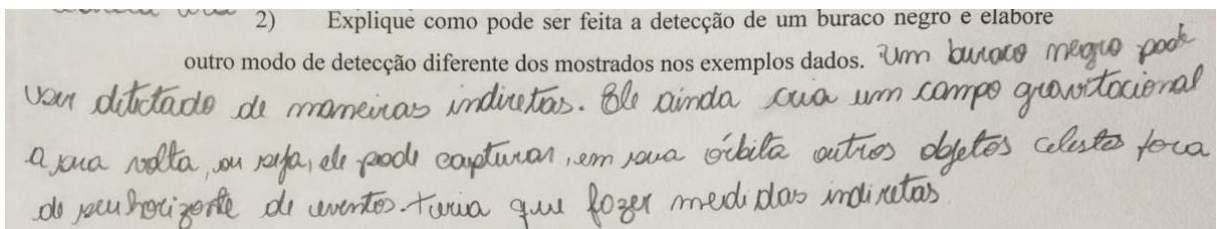 2) Explique como pode ser feita a detecção de um buraco negro e elabore
outro modo de detecção diferente dos mostrados nos exemplos dados. Um buraco negro pode
ser detectado de maneiras indiretas. Ele ainda cria um campo gravitacional
a sua volta, ou seja, ele pode capturar, em sua órbita outros objetos celestes fora
de seu horizonte de eventos. teria que fazer medidas indiretas